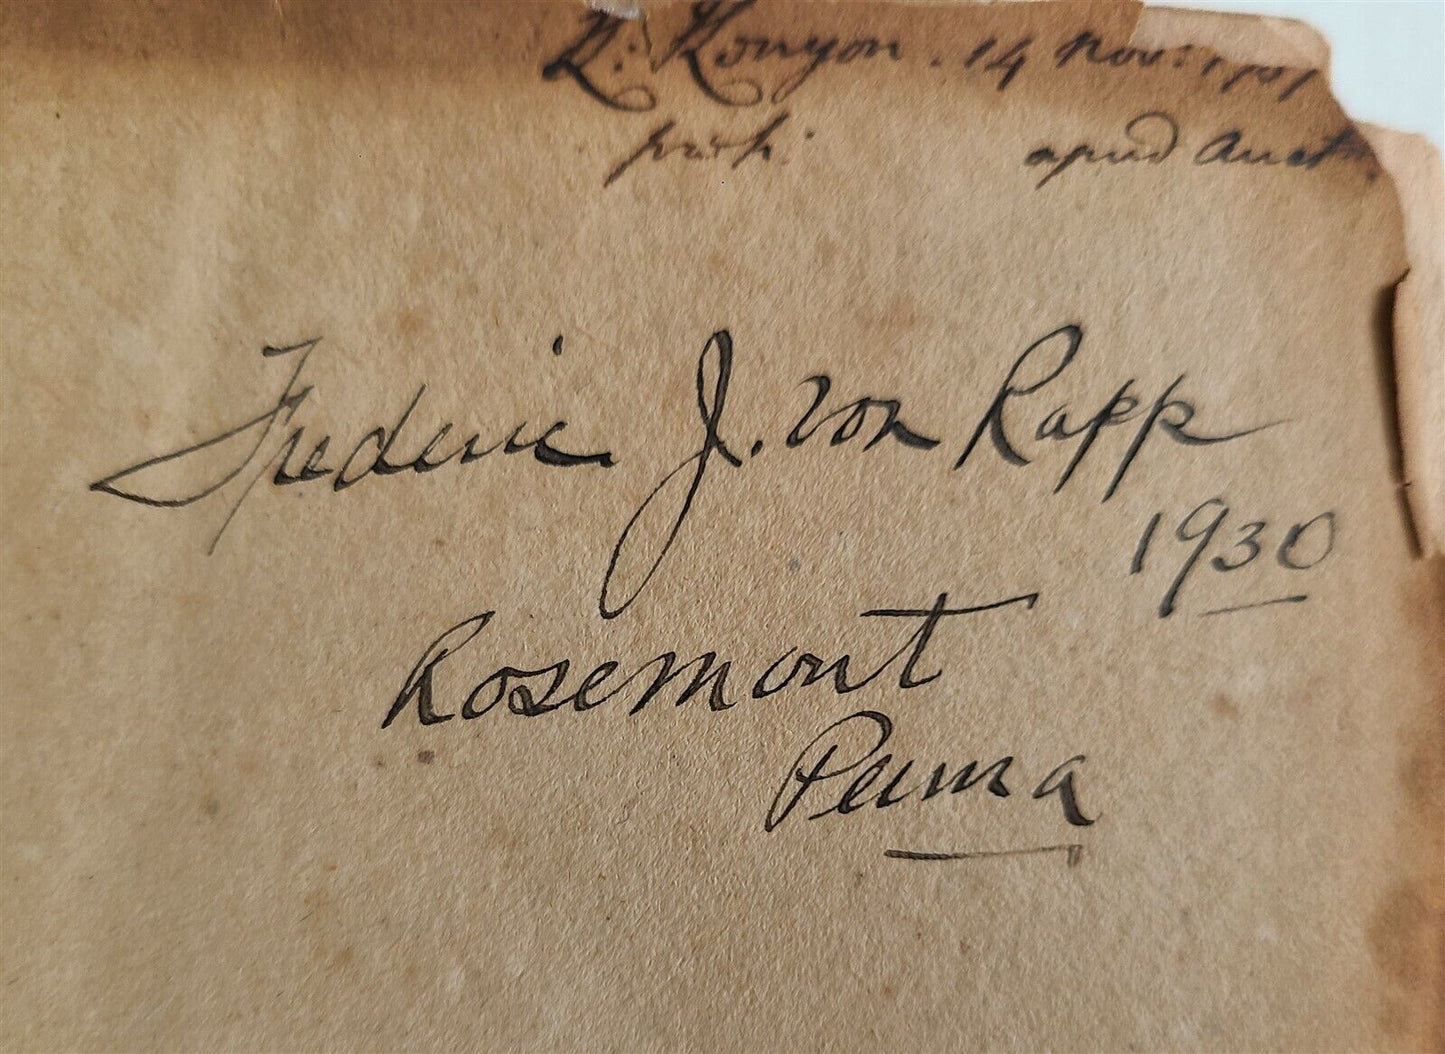 R: Konyon. 14 Nov:
apud Auct
Frederic J. von Rapp
1930
Rosemont
Penna